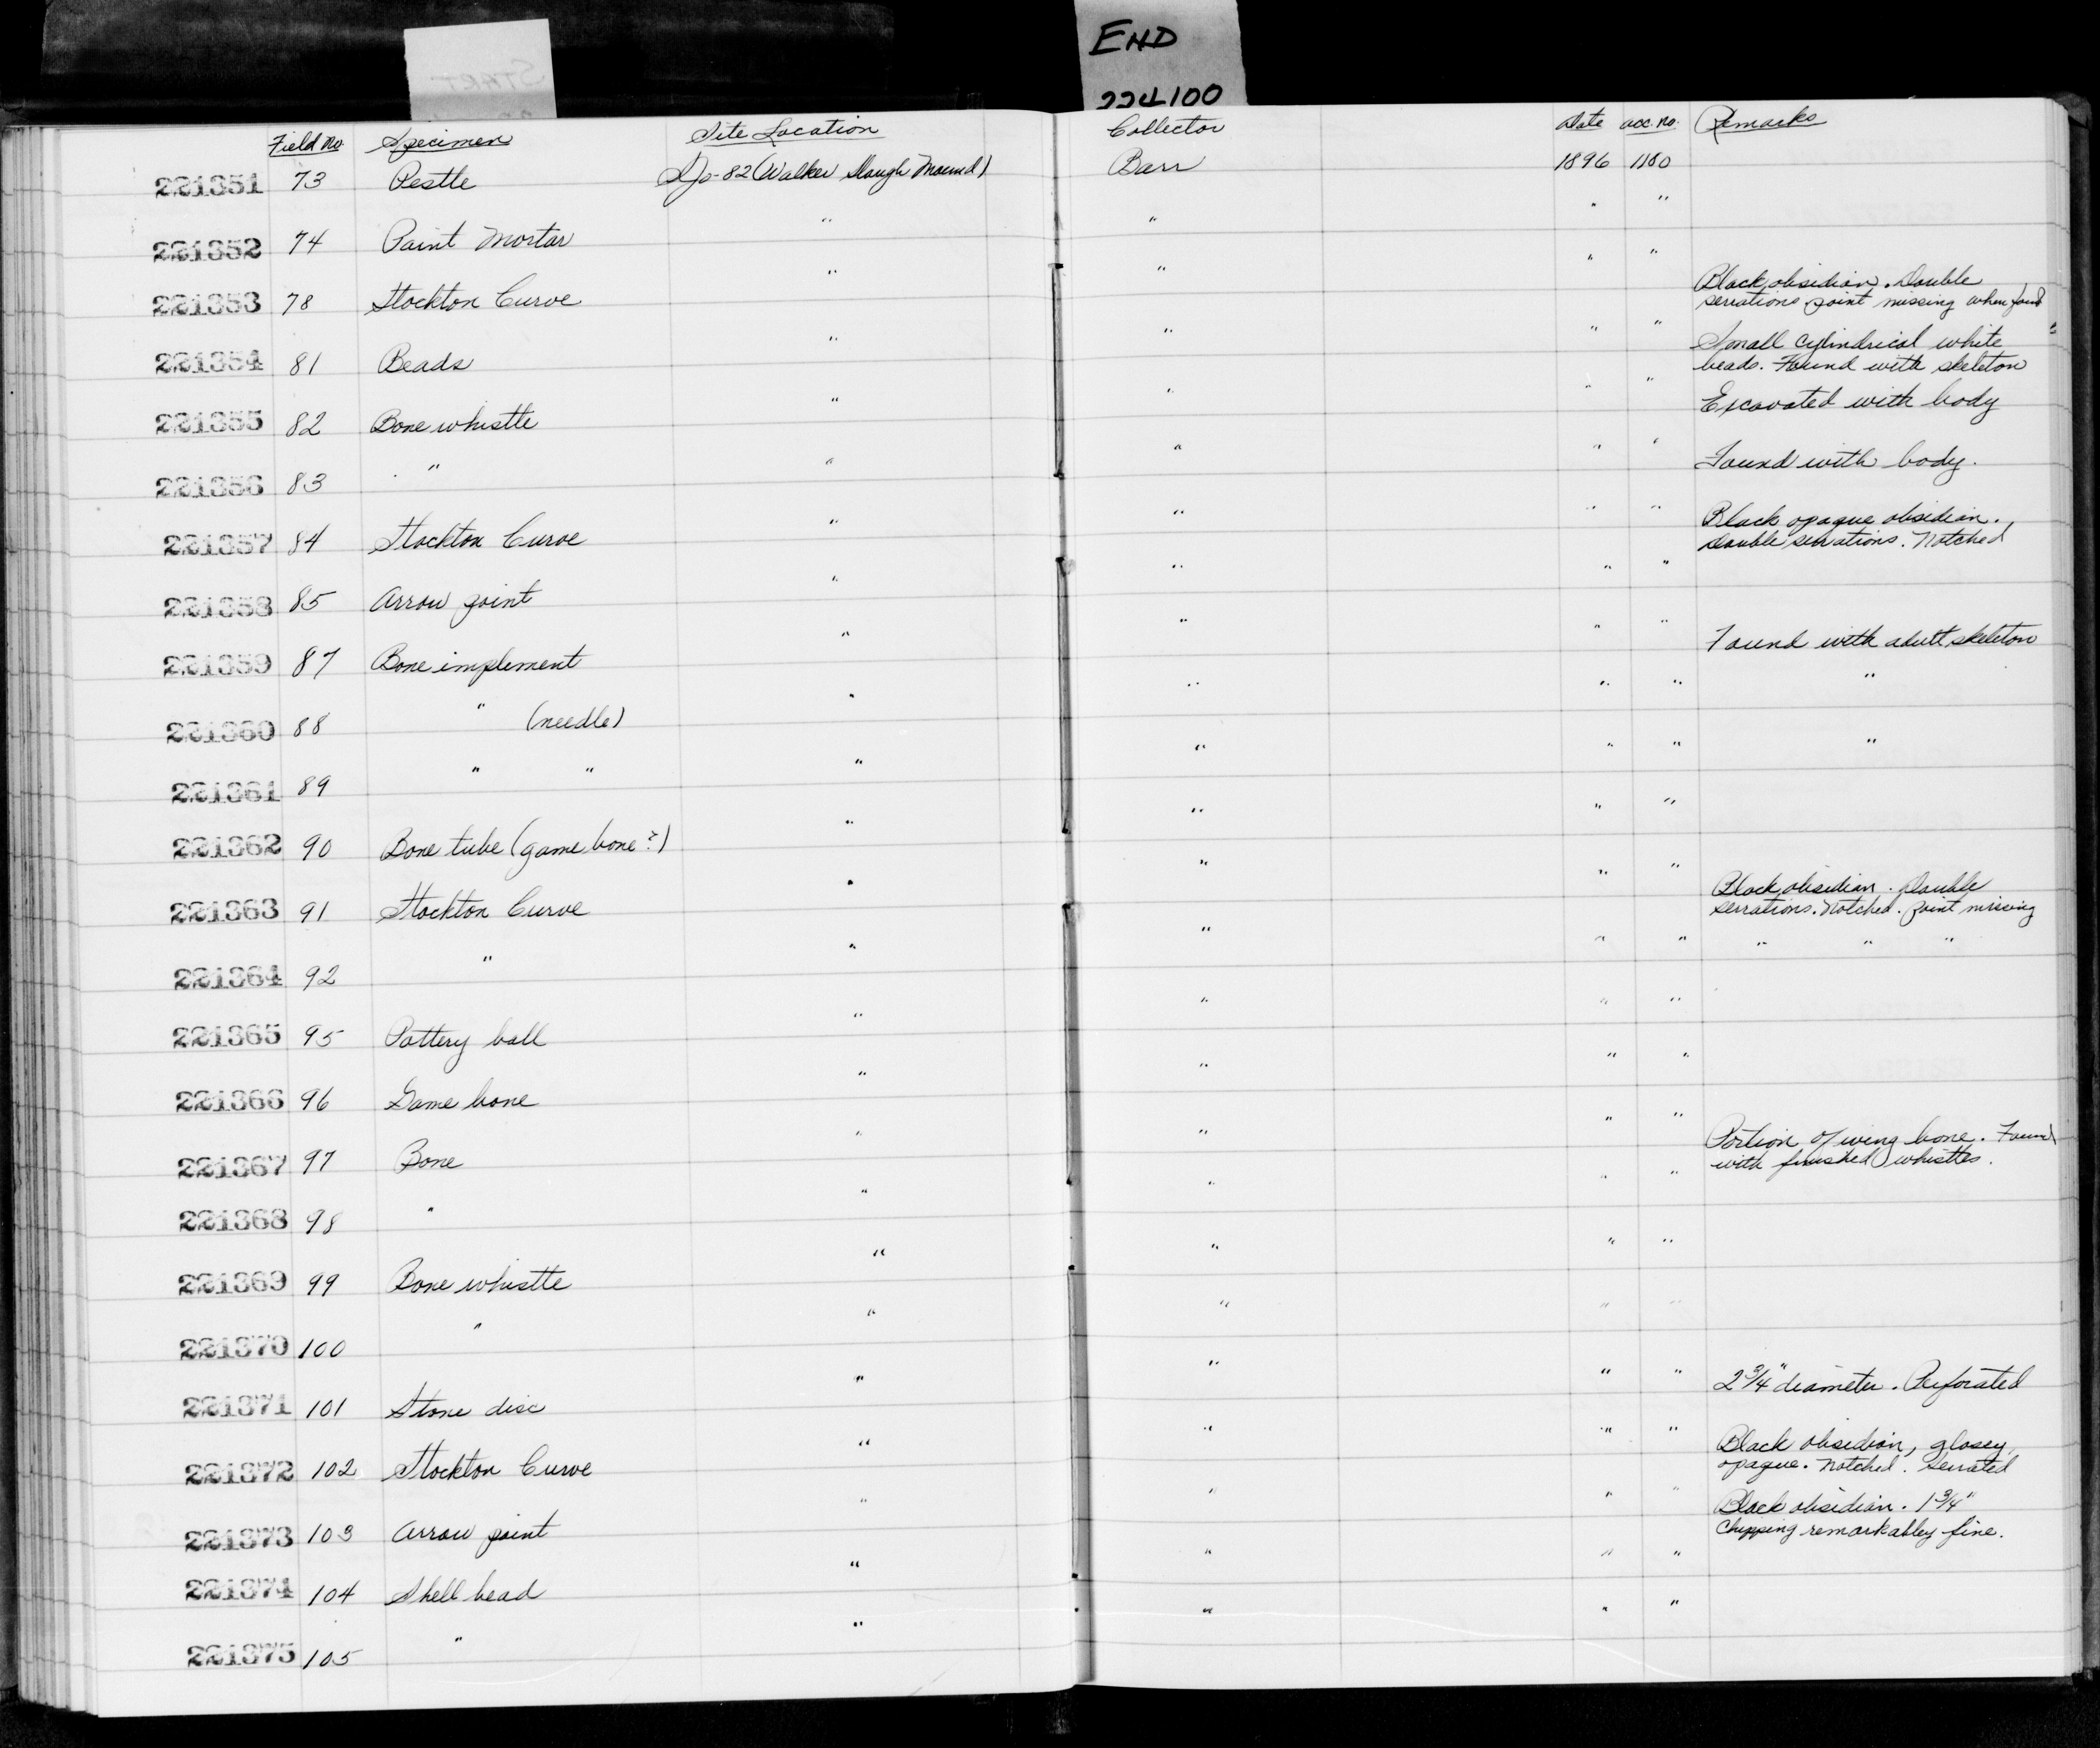 START
END
224100
Field No. Specimen Site Location Collector Date acc. no. Remarks
221351 73 Pestle SJo-82 (Walker Slough Mound) Barr 1896 1180
221352 74 Paint Mortar " " " "
221353 78 Stockton Curve " " " " Black obsidian. Double
serrations point missing when found
221354 81 Beads " " " " Small cylindrical white
beads. Found with skeleton
221355 82 Bone whistle " " " " Excavated with body
221356 83 " " " " " Found with body.
221357 84 Stockton Curve " " " " Black opaque obsidian.
Double serrations. Notched
221358 85 Arrow point " " " "
221359 87 Bone implement " " " " Found with adult skeleton
221360 88 " (needle) " " " " "
221361 89 " " " " " " "
221362 90 Bone tube (game bone?) " " " "
221363 91 Stockton Curve " " " " Black obsidian. Double
serrations. Notched. point missing
221364 92 " " " " " " " "
221365 95 Pottery ball " " " "
221366 96 Game bone " " " "
221367 97 Bone " " " " Portion of wing bone. Found
with finished whistles.
221368 98 " " " " "
221369 99 Bone whistle " " " "
221370 100 " " " " "
221371 101 Stone disc " " " " 2 3/4" diameter. Perforated
221372 102 Stockton Curve " " " " Black obsidian, glossy,
opaque. Notched. Serrated
221373 103 Arrow point " " " " Black obsidian. 1 3/4"
Chipping remarkabley fine.
221374 104 Shell bead " " " "
221375 105 " " " " "